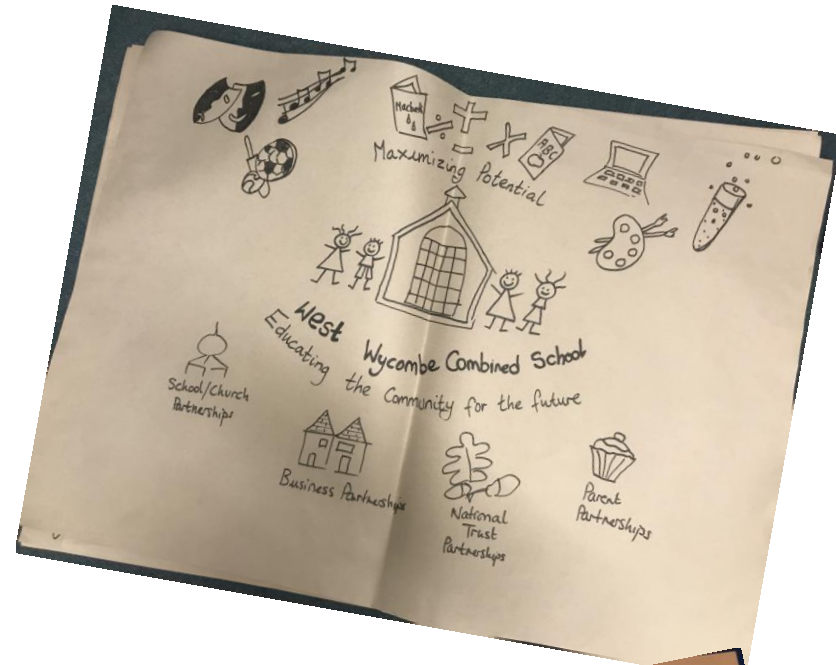 Macbeth
ABC
Maximizing Potential
West Wycombe Combined School
Educating the Community for the future
School/Church
Partnerships
Business Partnerships
National
Trust
Partnerships
Parent
Partnerships